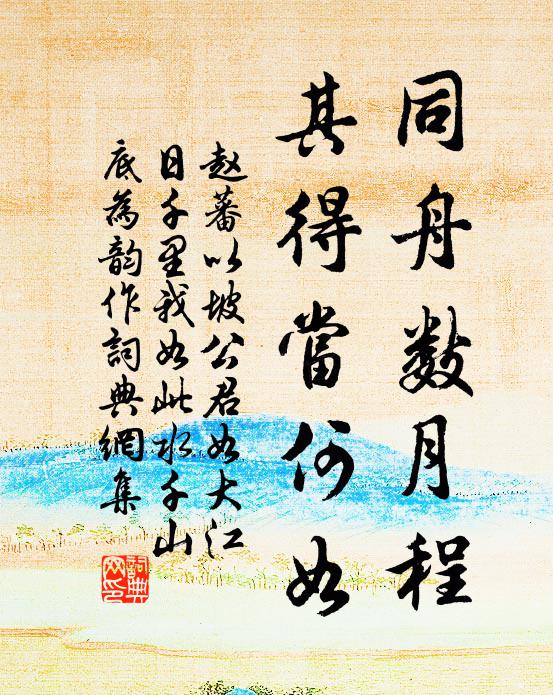 同舟数月程
其得當何如
赵蕃以坡公君如大江
日千里我如此水千山
底為韵作詞典網集
詞典
网印